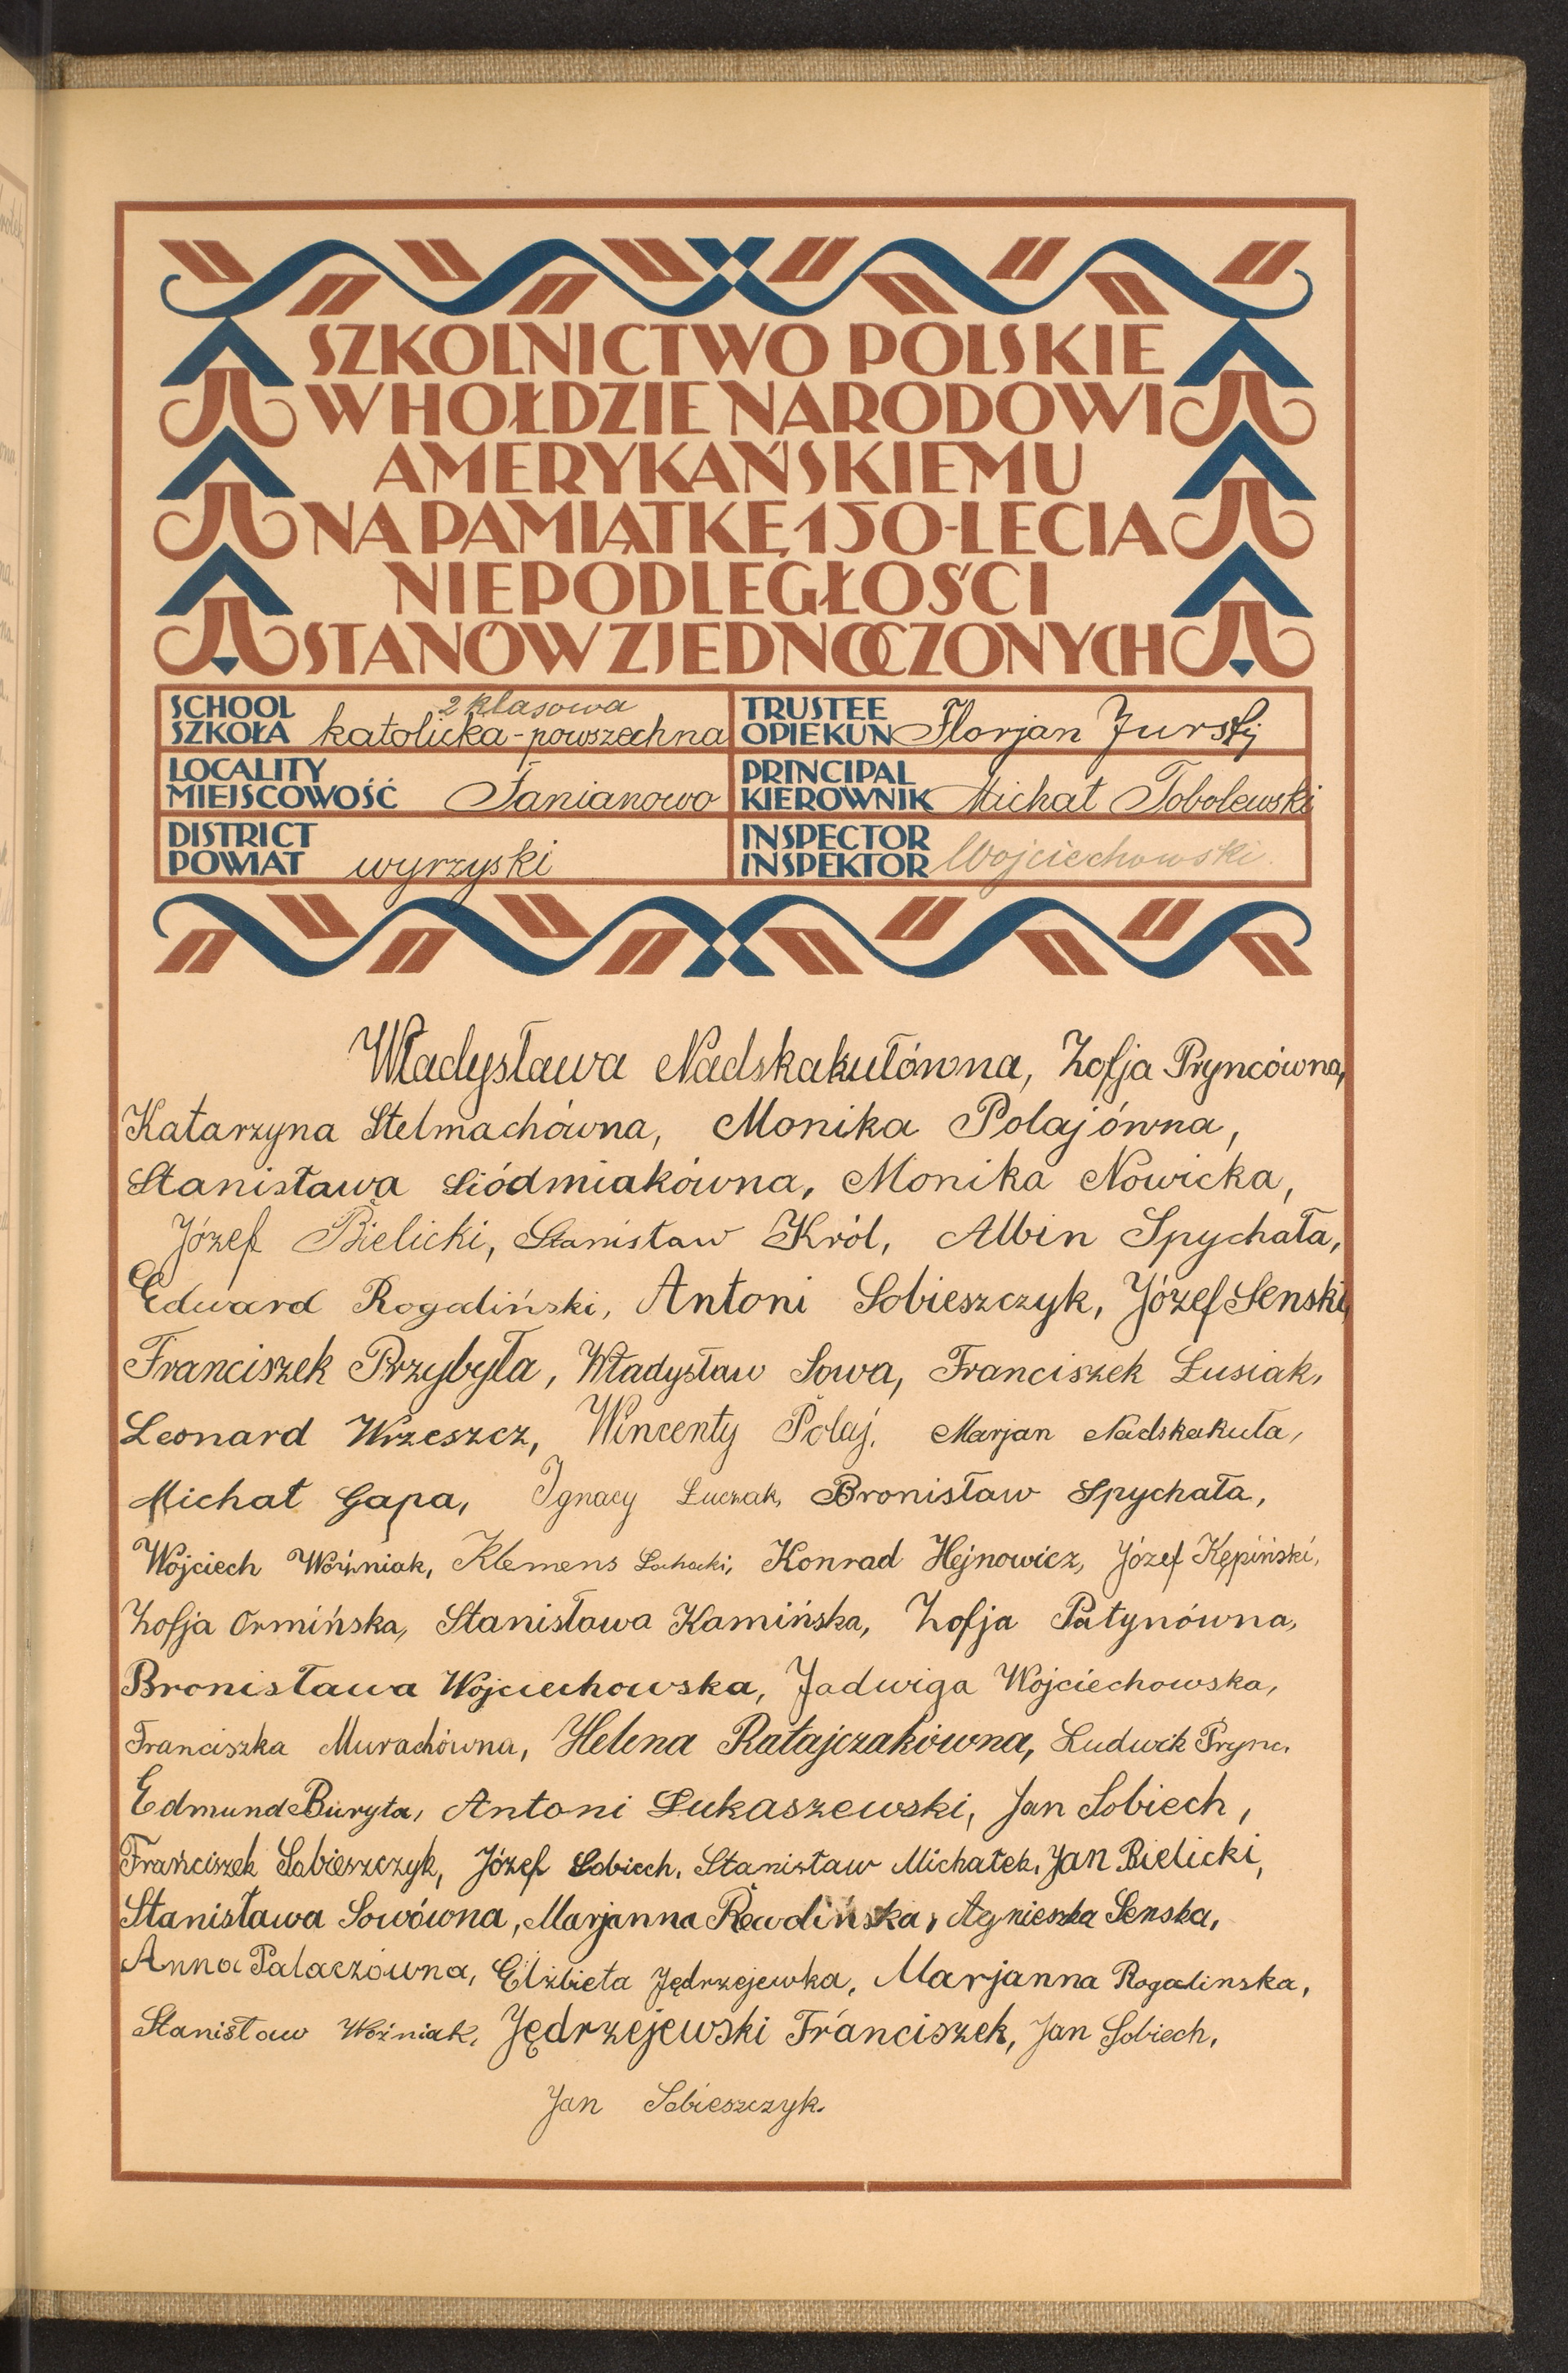 SZKOLNICTWO POLSKIE
W HOŁDZIE NARODOWI
AMERYKAŃSKIEMU
NA PAMIĄTKĘ 150-LECIA
NIEPODLEGŁOŚCI
STANÓW ZJEDNOCZONYCH
SCHOOL
SZKOŁA 2 klasowa katolicka-powszechna
TRUSTEE
OPIEKUN Florjan Jurski
LOCALITY
MIEJSCOWOŚĆ
PRINCIPAL
KIEROWNIK Michał Tobolewski
DISTRICT
POWIAT wyrzyski
INSPECTOR
INSPEKTOR Wojciechowski.
Władysława Nadskakułówna, Zofja Pryncówna,
Katarzyna Stelmachówna, Monika Polajówna,
Stanisława Siódmiakówna, Monika Nowicka,
Józef Bielicki, Stanisław Król, Albin Spychała,
Edward Rogaliński, Antoni Sobieszczyk, Józef Senski,
Franciszek Przybyła, Władysław Sowa, Franciszek Łusiak,
Leonard Wrzeszcz, Wincenty Polaj, Marjan Nadskakuła,
Michał Gapa, Ignacy Łuczak, Bronisław Spychała,
Wojciech Woźniak, Klemens Konrad Hejnowicz, Józef Kępiński,
Zofja Ormińska, Stanisława Kamińska, Zofja Patynówna,
Bronisława Wojciechowska, Jadwiga Wojciechowska,
Franciszka Murachówna, Helena Ratajczakówna, Ludwik Prync.
Edmund Buryta, Antoni Łukaszewski, Jan Sobiech,
Franciszek Sobieszczyk, Józef Sobiech, Stanisław Michałek, Jan Bielicki,
Stanisława Sowówna, Marjanna Rewolińska, Agnieszka Senska,
Anna Palaczówna, Elżbieta Jędrzejewka, Marjanna Rogalinska,
Stanisław Woźniak, Jędrzejewski Franciszek, Jan Sobiech,
Jan Sobieszczyk.